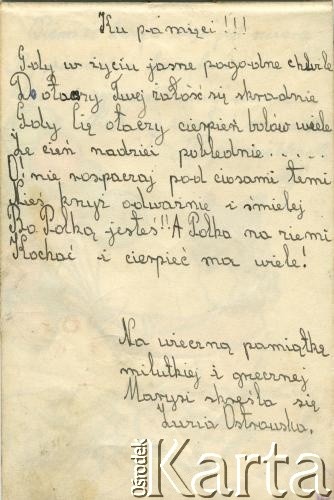 Ku pamięci!!!
Gdy w życiu jasne pogodne chwile
Do Twej żałość się skradnie
Gdy Cię otoczy cierpień bólów wiele
Że cień nadziei poblednie......
O! nie rozpaczaj pod ciosami temi
Nieś krzyż odważnie i śmielej
Bo Polką jesteś!! A Polka na ziemi
Kochać i cierpieć ma wiele!
Na wieczną pamiątkę
milutkiej i grzecznej
Marysi skreśla się
Luzia Ostrowska.
Ośrodek
Karta